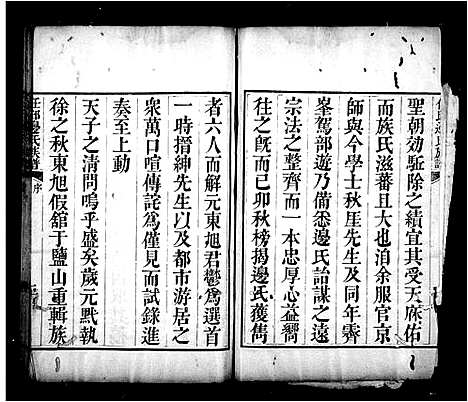 聖朝効駈除之績宜其受天庥佑
而族氏滋蕃且大也洎余服官京
師與今學士秋厓先生及同年霽
峯駕部遊乃備悉邊氏詒謀之遠
宗法之整齊而一本忠厚心益嚮
往之旣己卯秋榜揭邊氏獲雋
者六人而解元東旭君鬱爲選首
一時搢紳先生以及都市游居之
衆萬口喧傳詫爲僅見而試錄進
奏至上動
天子之清問嗚乎盛矣歲元黓執
徐之秋東旭假舘于鹽山重輯族
任邱邊氏族譜 序